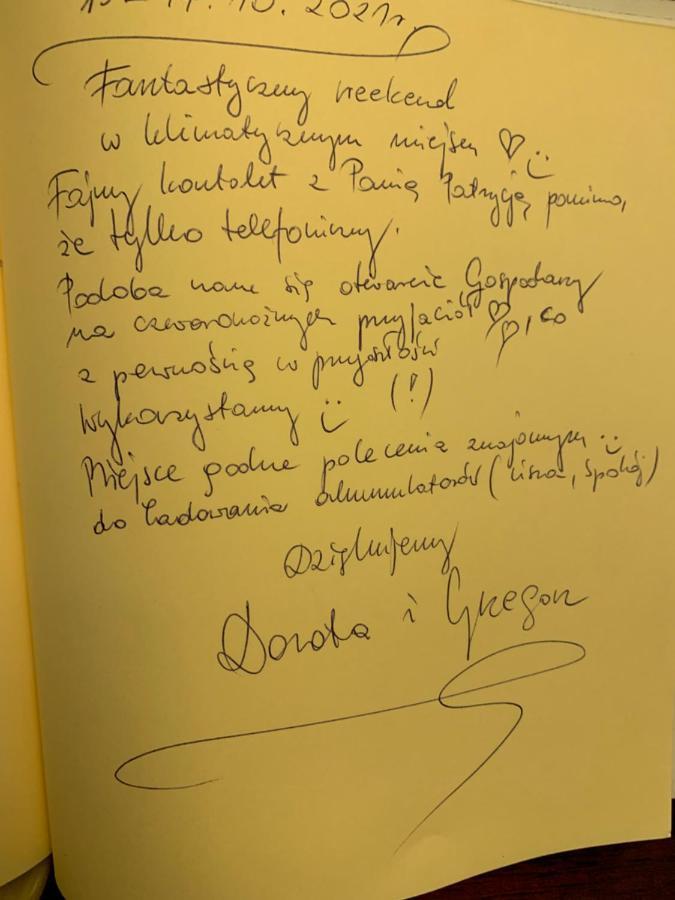 15 - 17. 10. 2021r.
Fantastyczny weekend
w klimatycznym miejscu ♡ :)
Fajny kontakt z Panią Patrycją pomimo,
że tylko telefoniczny.
Podoba nam się otwarcie Gospodarzy
na czworonożnych przyjaciół ♡♡, co
z pewnością w przyszłości
wykorzystamy :) (!)
Miejsce godne polecenia znajomym :)
do ładowania akumulatorów (cisza, spokój)
Dziękujemy
Dorota i Grzegorz